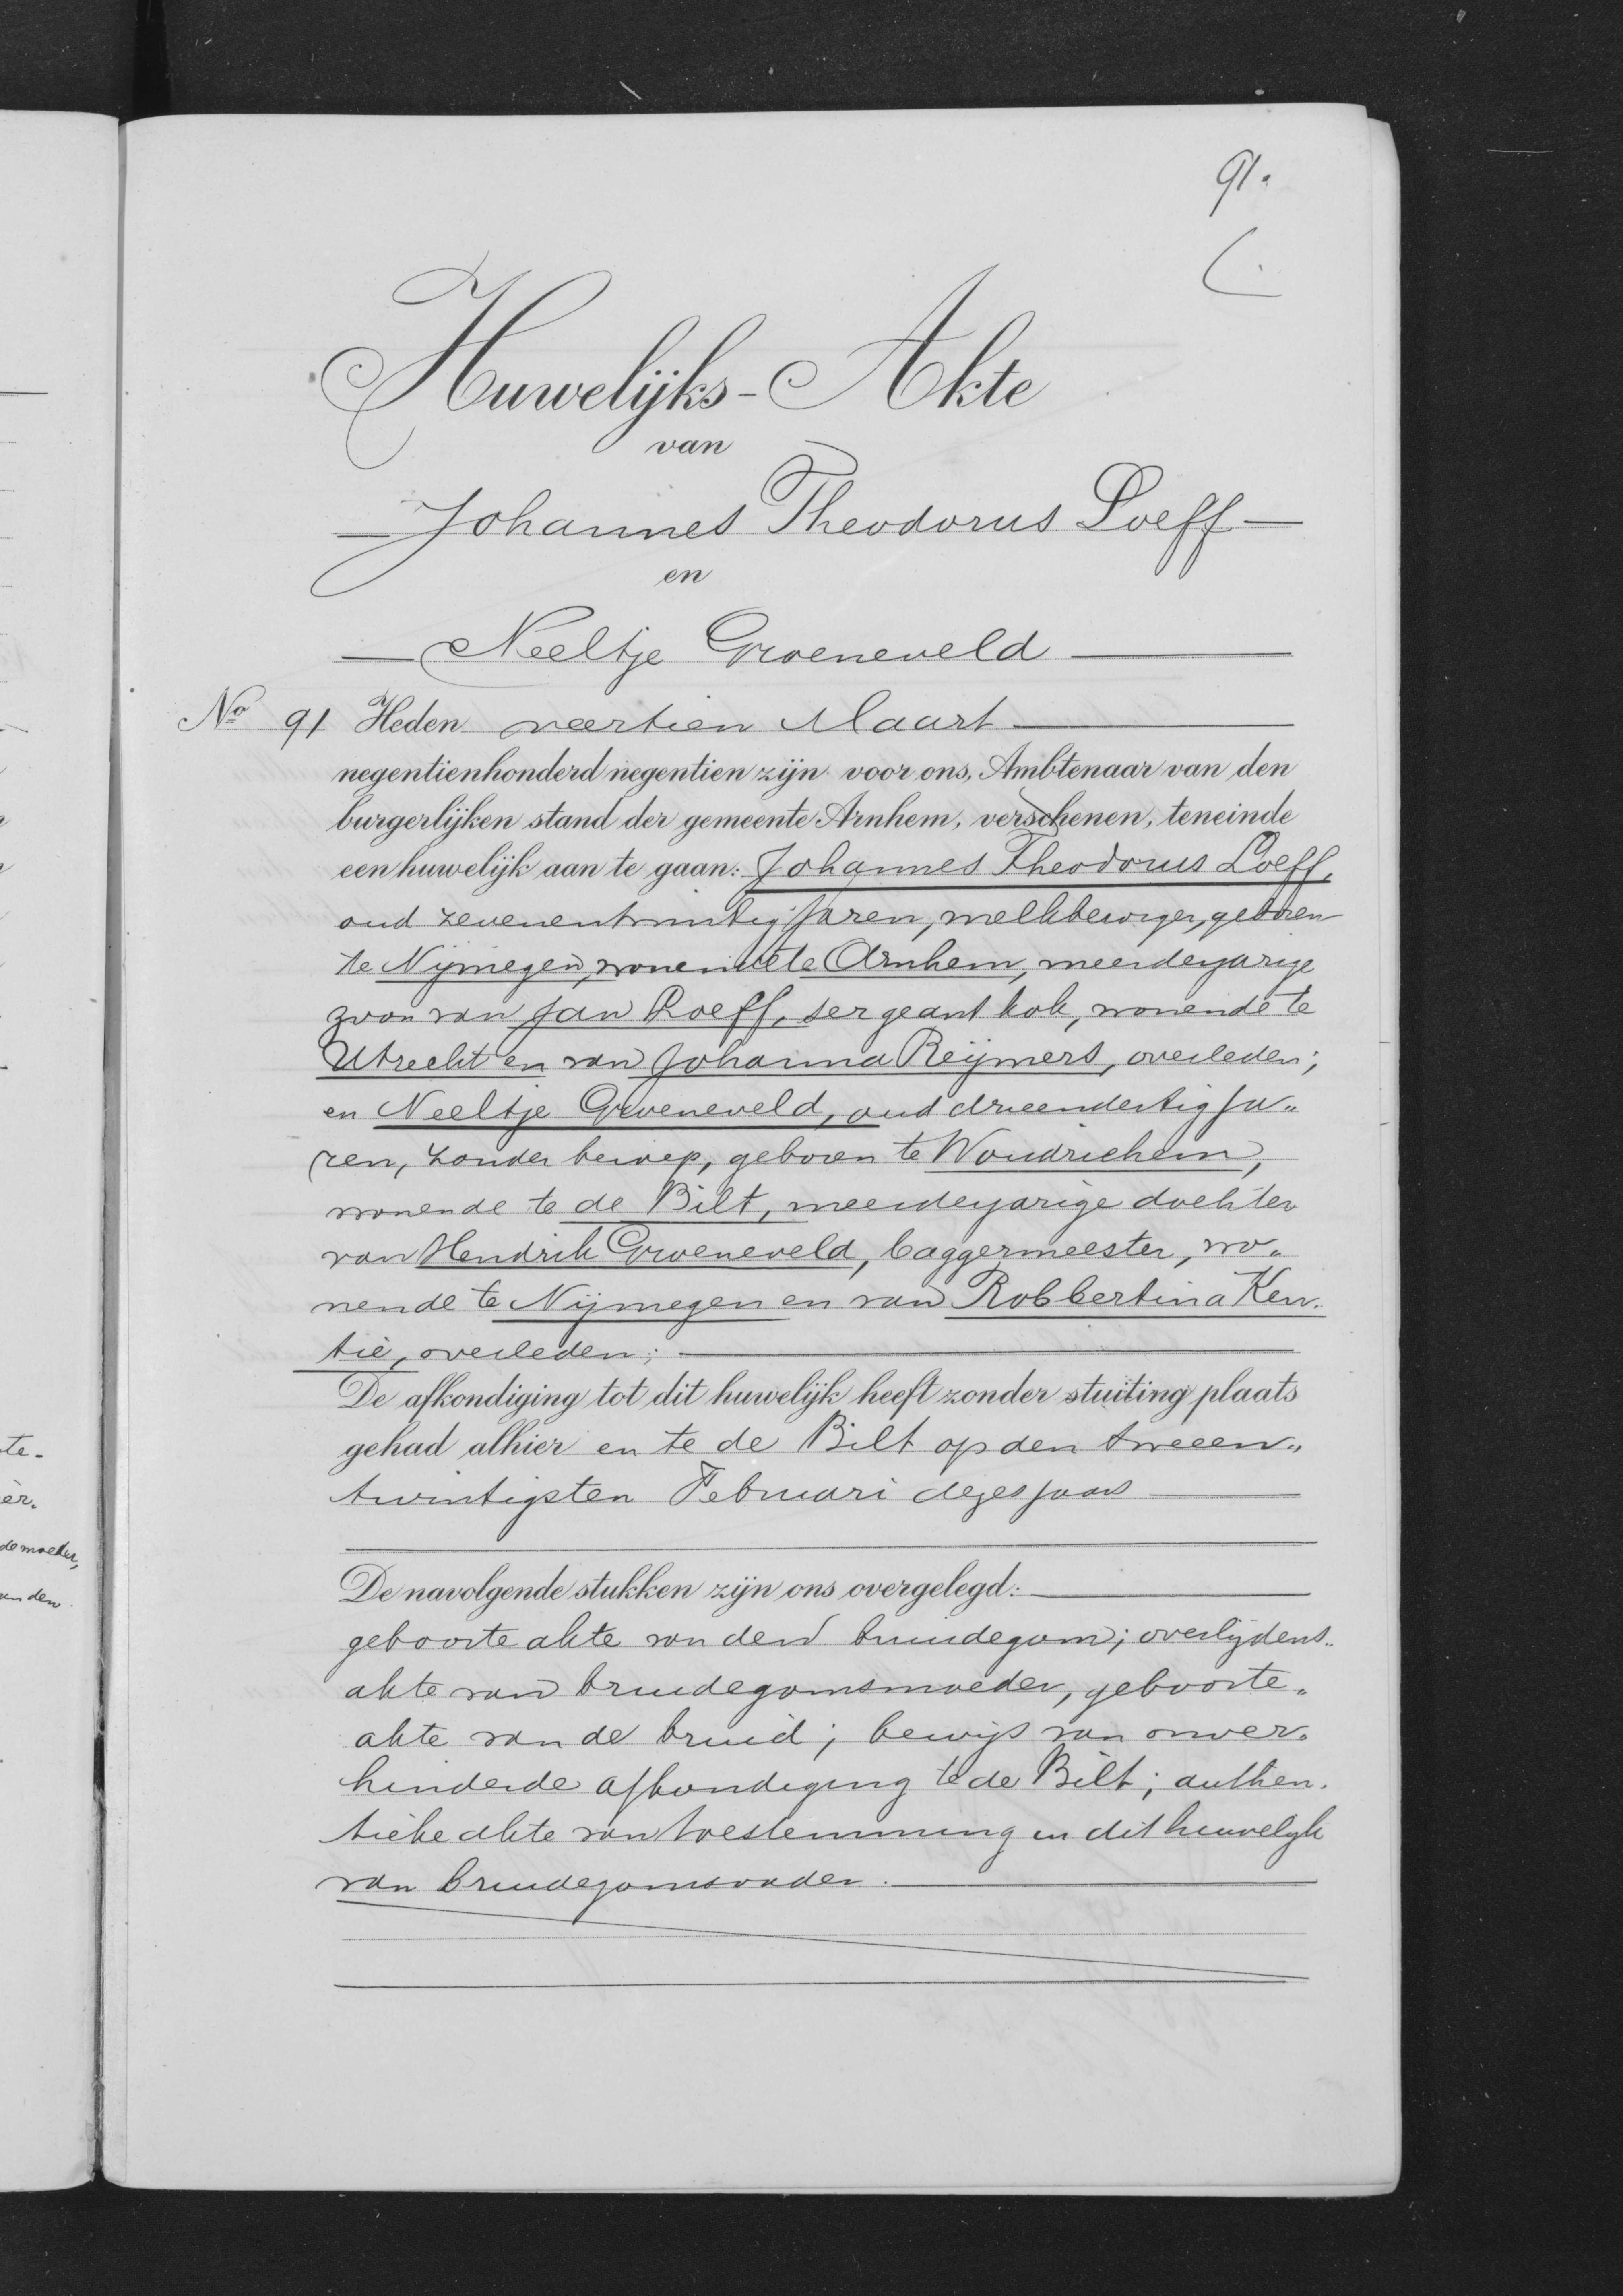 91.
Huwelijks-Akte
van
Johannes Theodorus Loeff
en
Neeltje Groeneveld
No 91 Heden veertien Maart
negentienhonderd negentien zijn voor ons, Ambtenaar van den
burgerlijken stand der gemeente Arnhem, verschenen, teneinde
een huwelijk aan te gaan: Johannes Theodorus Loeff,
oud zevenentwintig jaren, melkbezorger, geboren
te Nijmegen, wonende te Arnhem, meerderjarige
zoon van Jan Loeff, sergeant kok, wonende te
Utrecht en van Johanna Reijmers, overleden;
en Neeltje Groeneveld, oud drieendertig ja„
ren, zonder beroep, geboren te Woudrichem,
wonende te de Bilt, meerderjarige dochter
van Hendrik Groeneveld, baggermeester, wo„
nende te Nijmegen en van Robbertina Ken„
tie, overleden;
De afkondiging tot dit huwelijk heeft zonder stuiting plaats
gehad alhier en te de Bilt op den tweeen„
twintigsten Februari dezes jaars
De navolgende stukken zijn ons overgelegd:
geboorte akte van den bruidegom; overlijdens„
akte van bruidegomsmoeder, geboorte„
akte van de bruid; bewijs van onver„
hinderde afkondiging te de Bilt; authen„
tieke akte van toestemming in dit huwelijk
van bruidegomsvader.
te-
er.
de moeder,